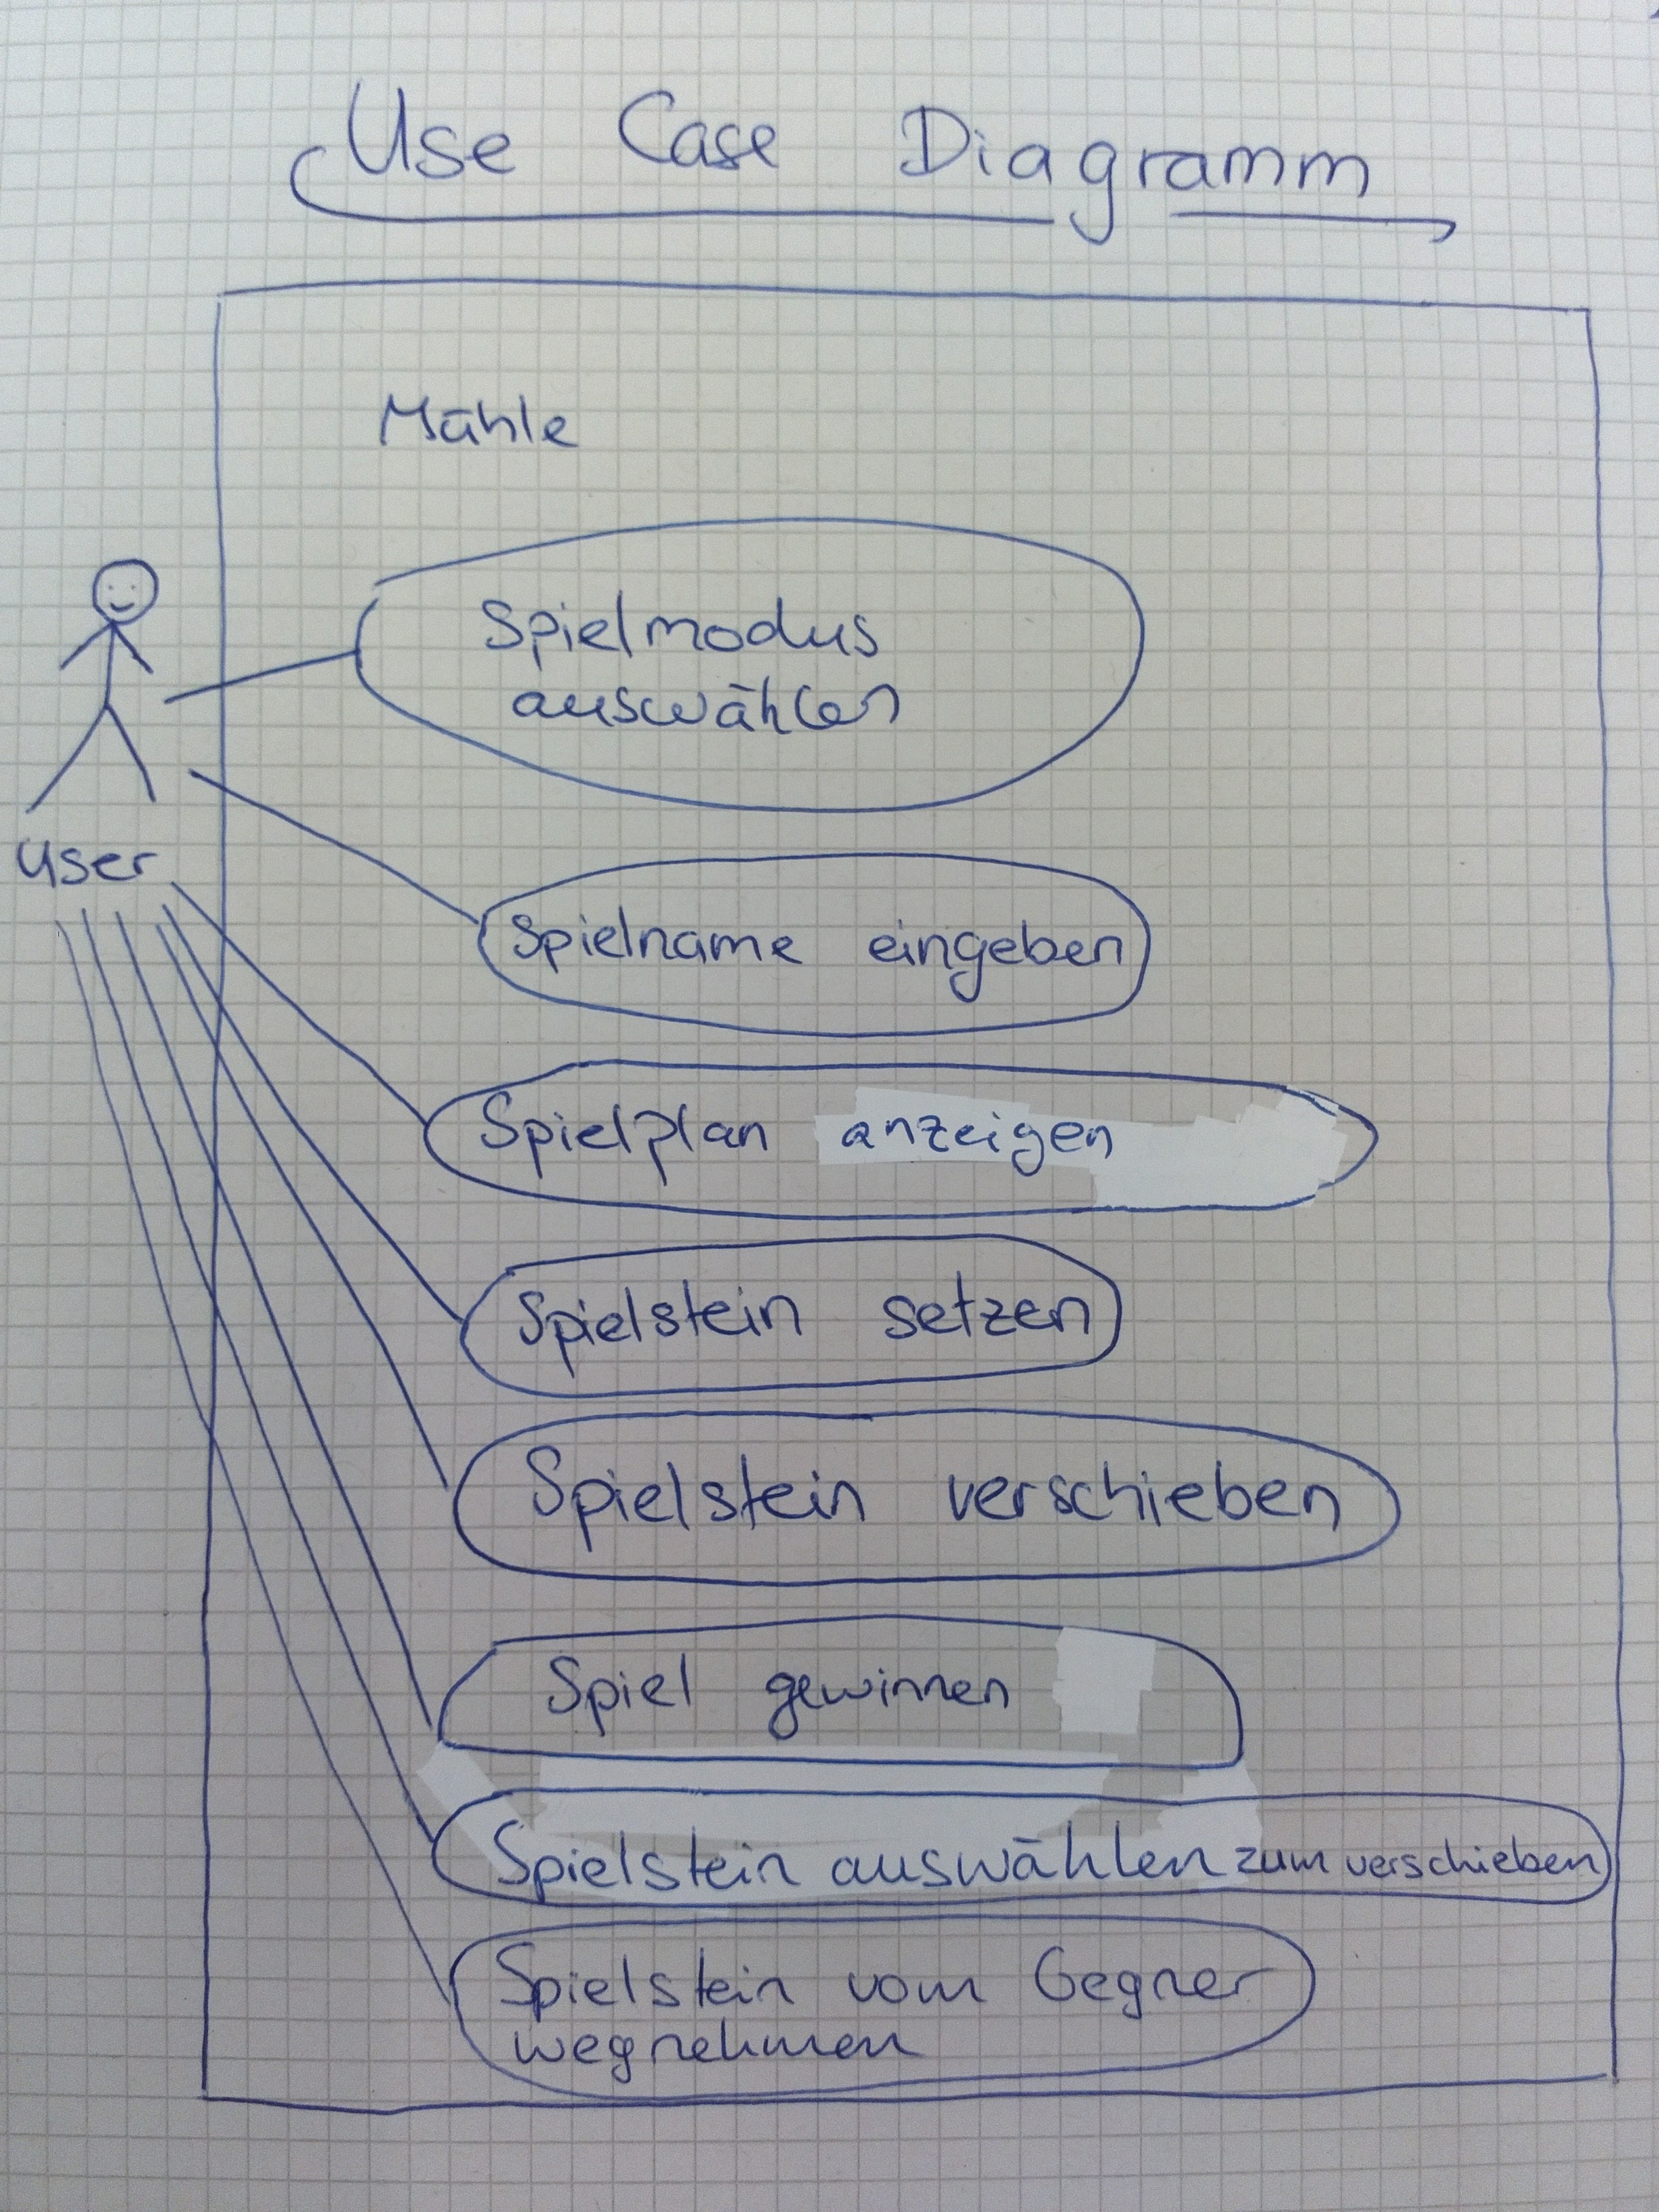 Use Case Diagramm
Mühle
Spielmodus
auswählen
User
Spielname eingeben
Spielplan anzeigen
Spielstein setzen
Spielstein verschieben
Spiel gewinnen
Spielstein auswählen zum verschieben
Spielstein vom Gegner
wegnehmen